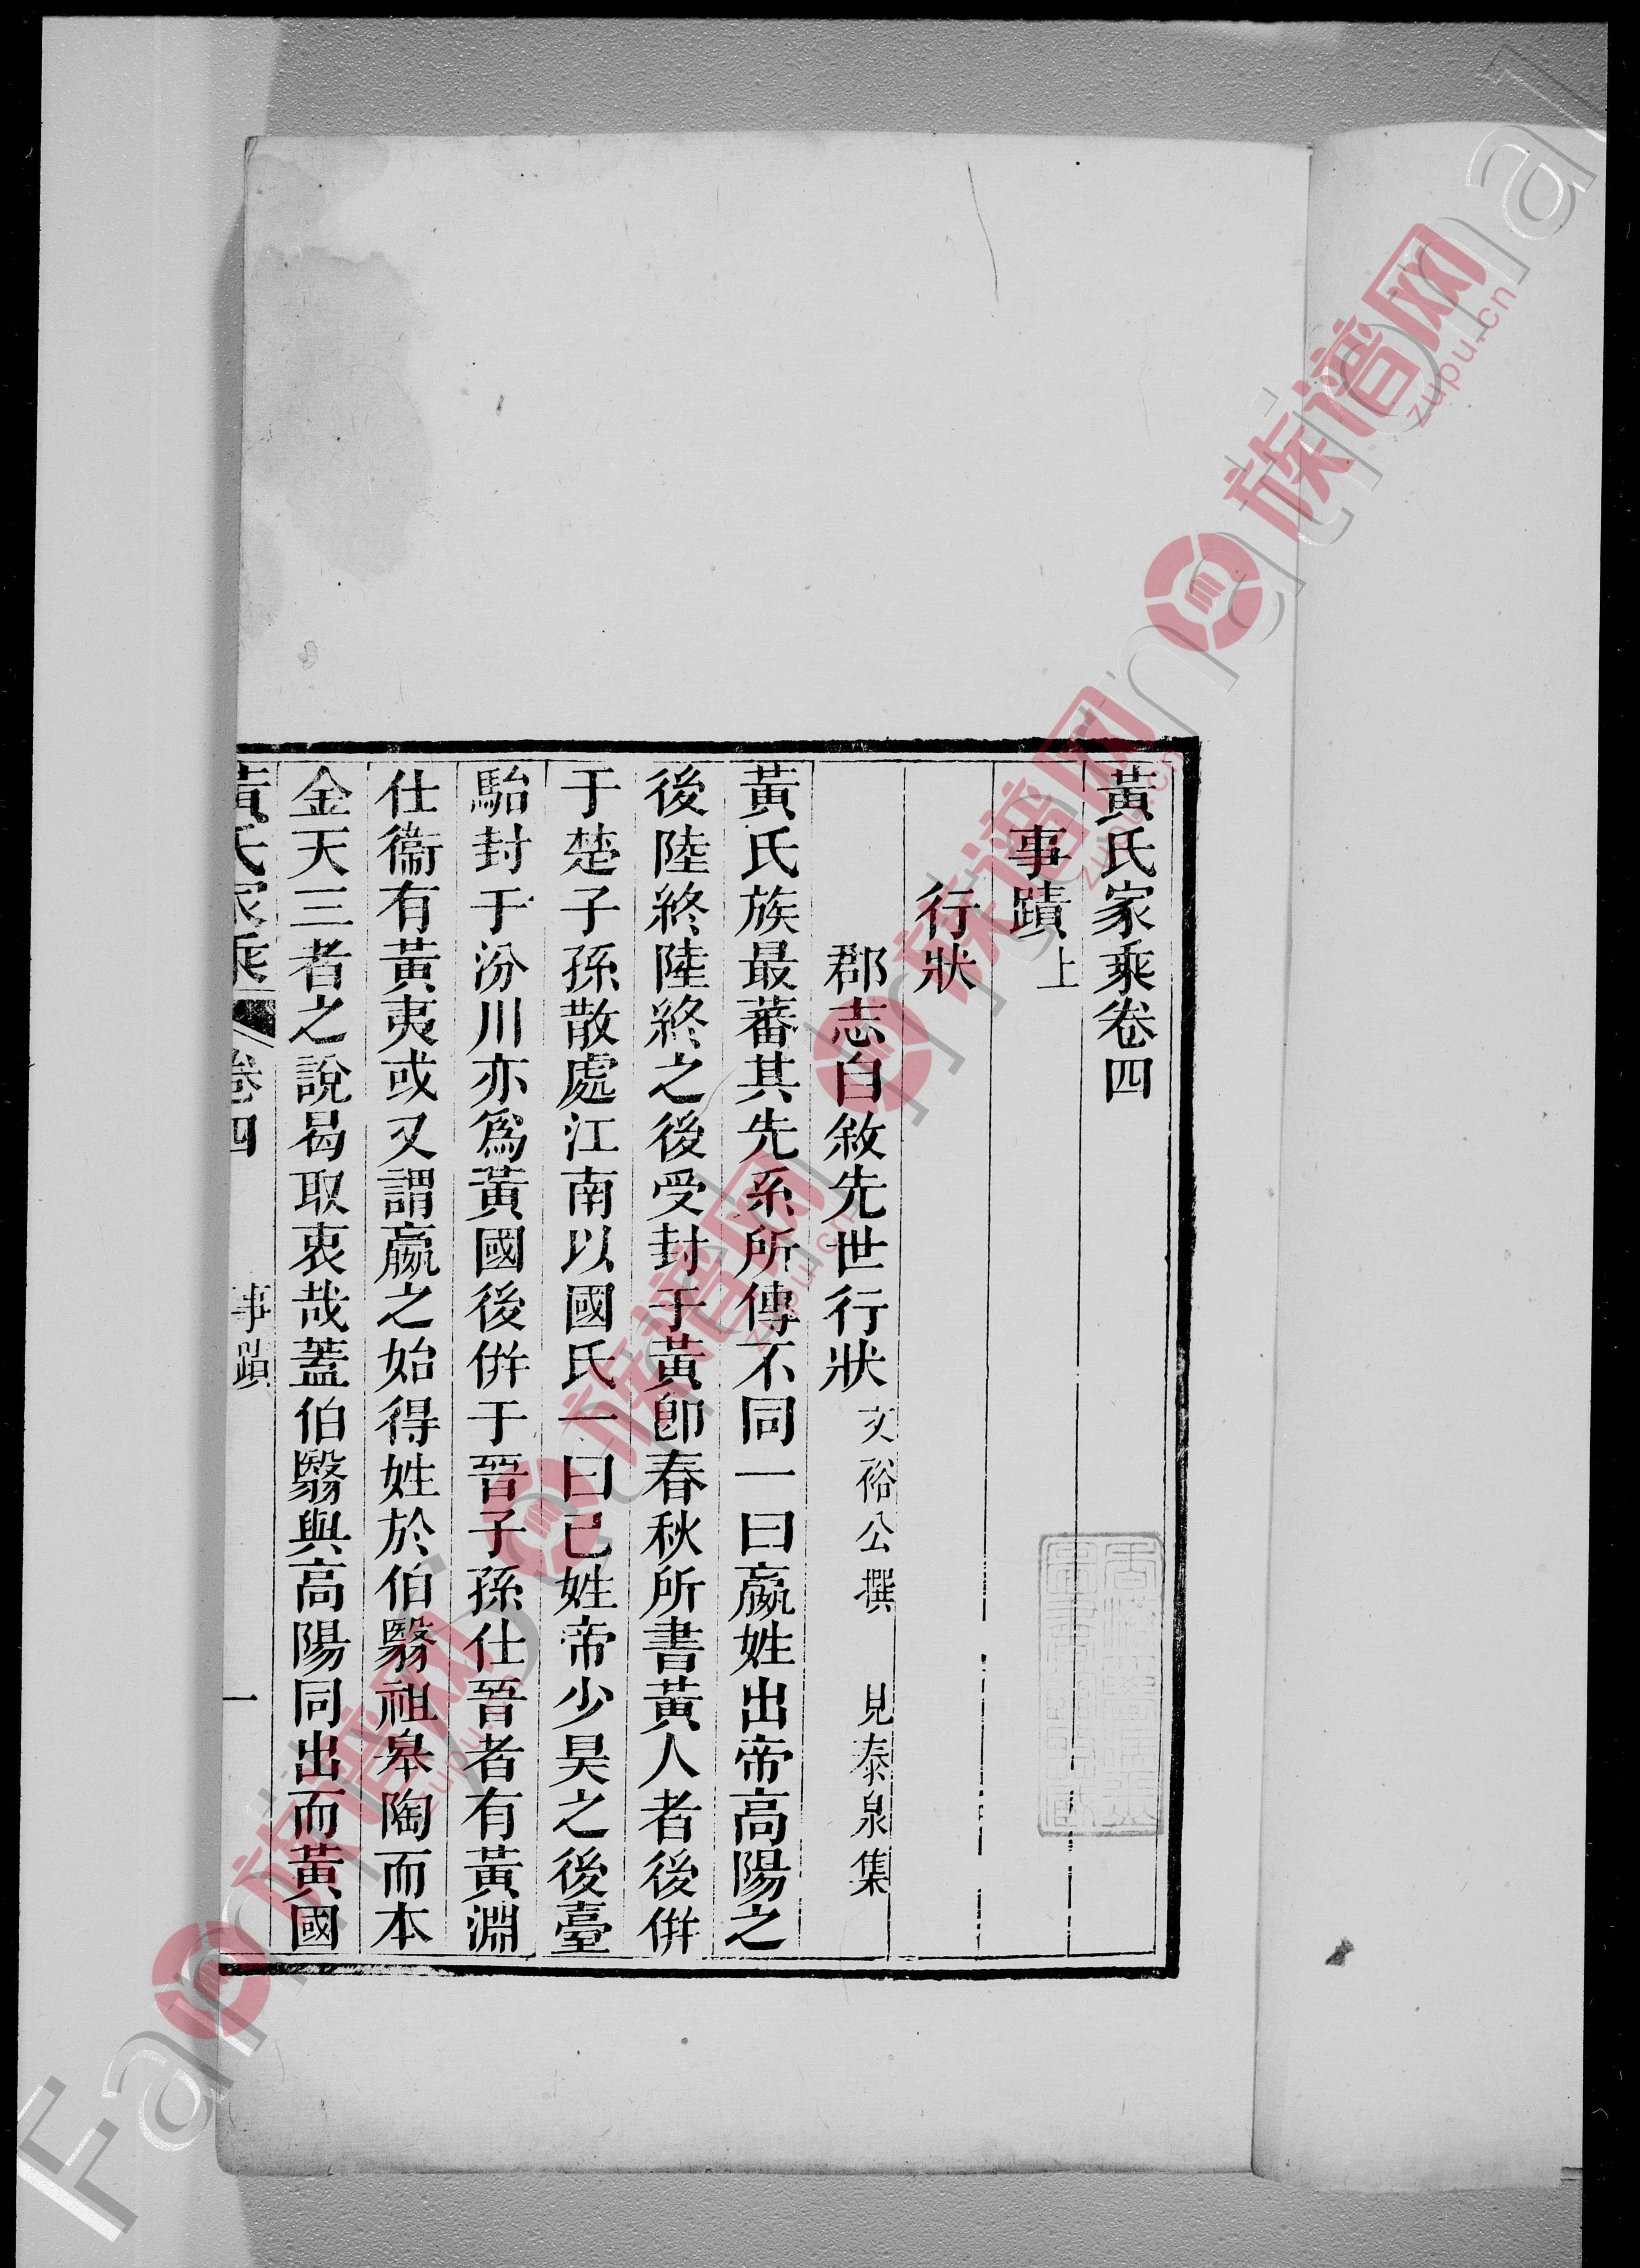 黃氏家乘卷四
事蹟上
行狀
郡志自敘先世行狀 文裕公撰 見泰泉集
黃氏族最蕃其先系所傳不同一曰嬴姓出帝高陽之
後陸終陸終之後受封于黃卽春秋所書黃人者後併
于楚子孫散處江南以國氏一曰己姓帝少昊之後臺
駘封于汾川亦爲黃國後併于晉子孫仕晉者有黃淵
仕衞有黃夷或又謂嬴之始得姓於伯翳祖皋陶而本
金天三者之說曷取衷哉蓋伯翳與高陽同出而黃國
黃氏家乘 卷四 事蹟 一
族谱网 zupu.cn
族谱网 zupu.cn
族谱网 zupu.cn
族谱网 zupu.cn
族谱网 zupu.cn